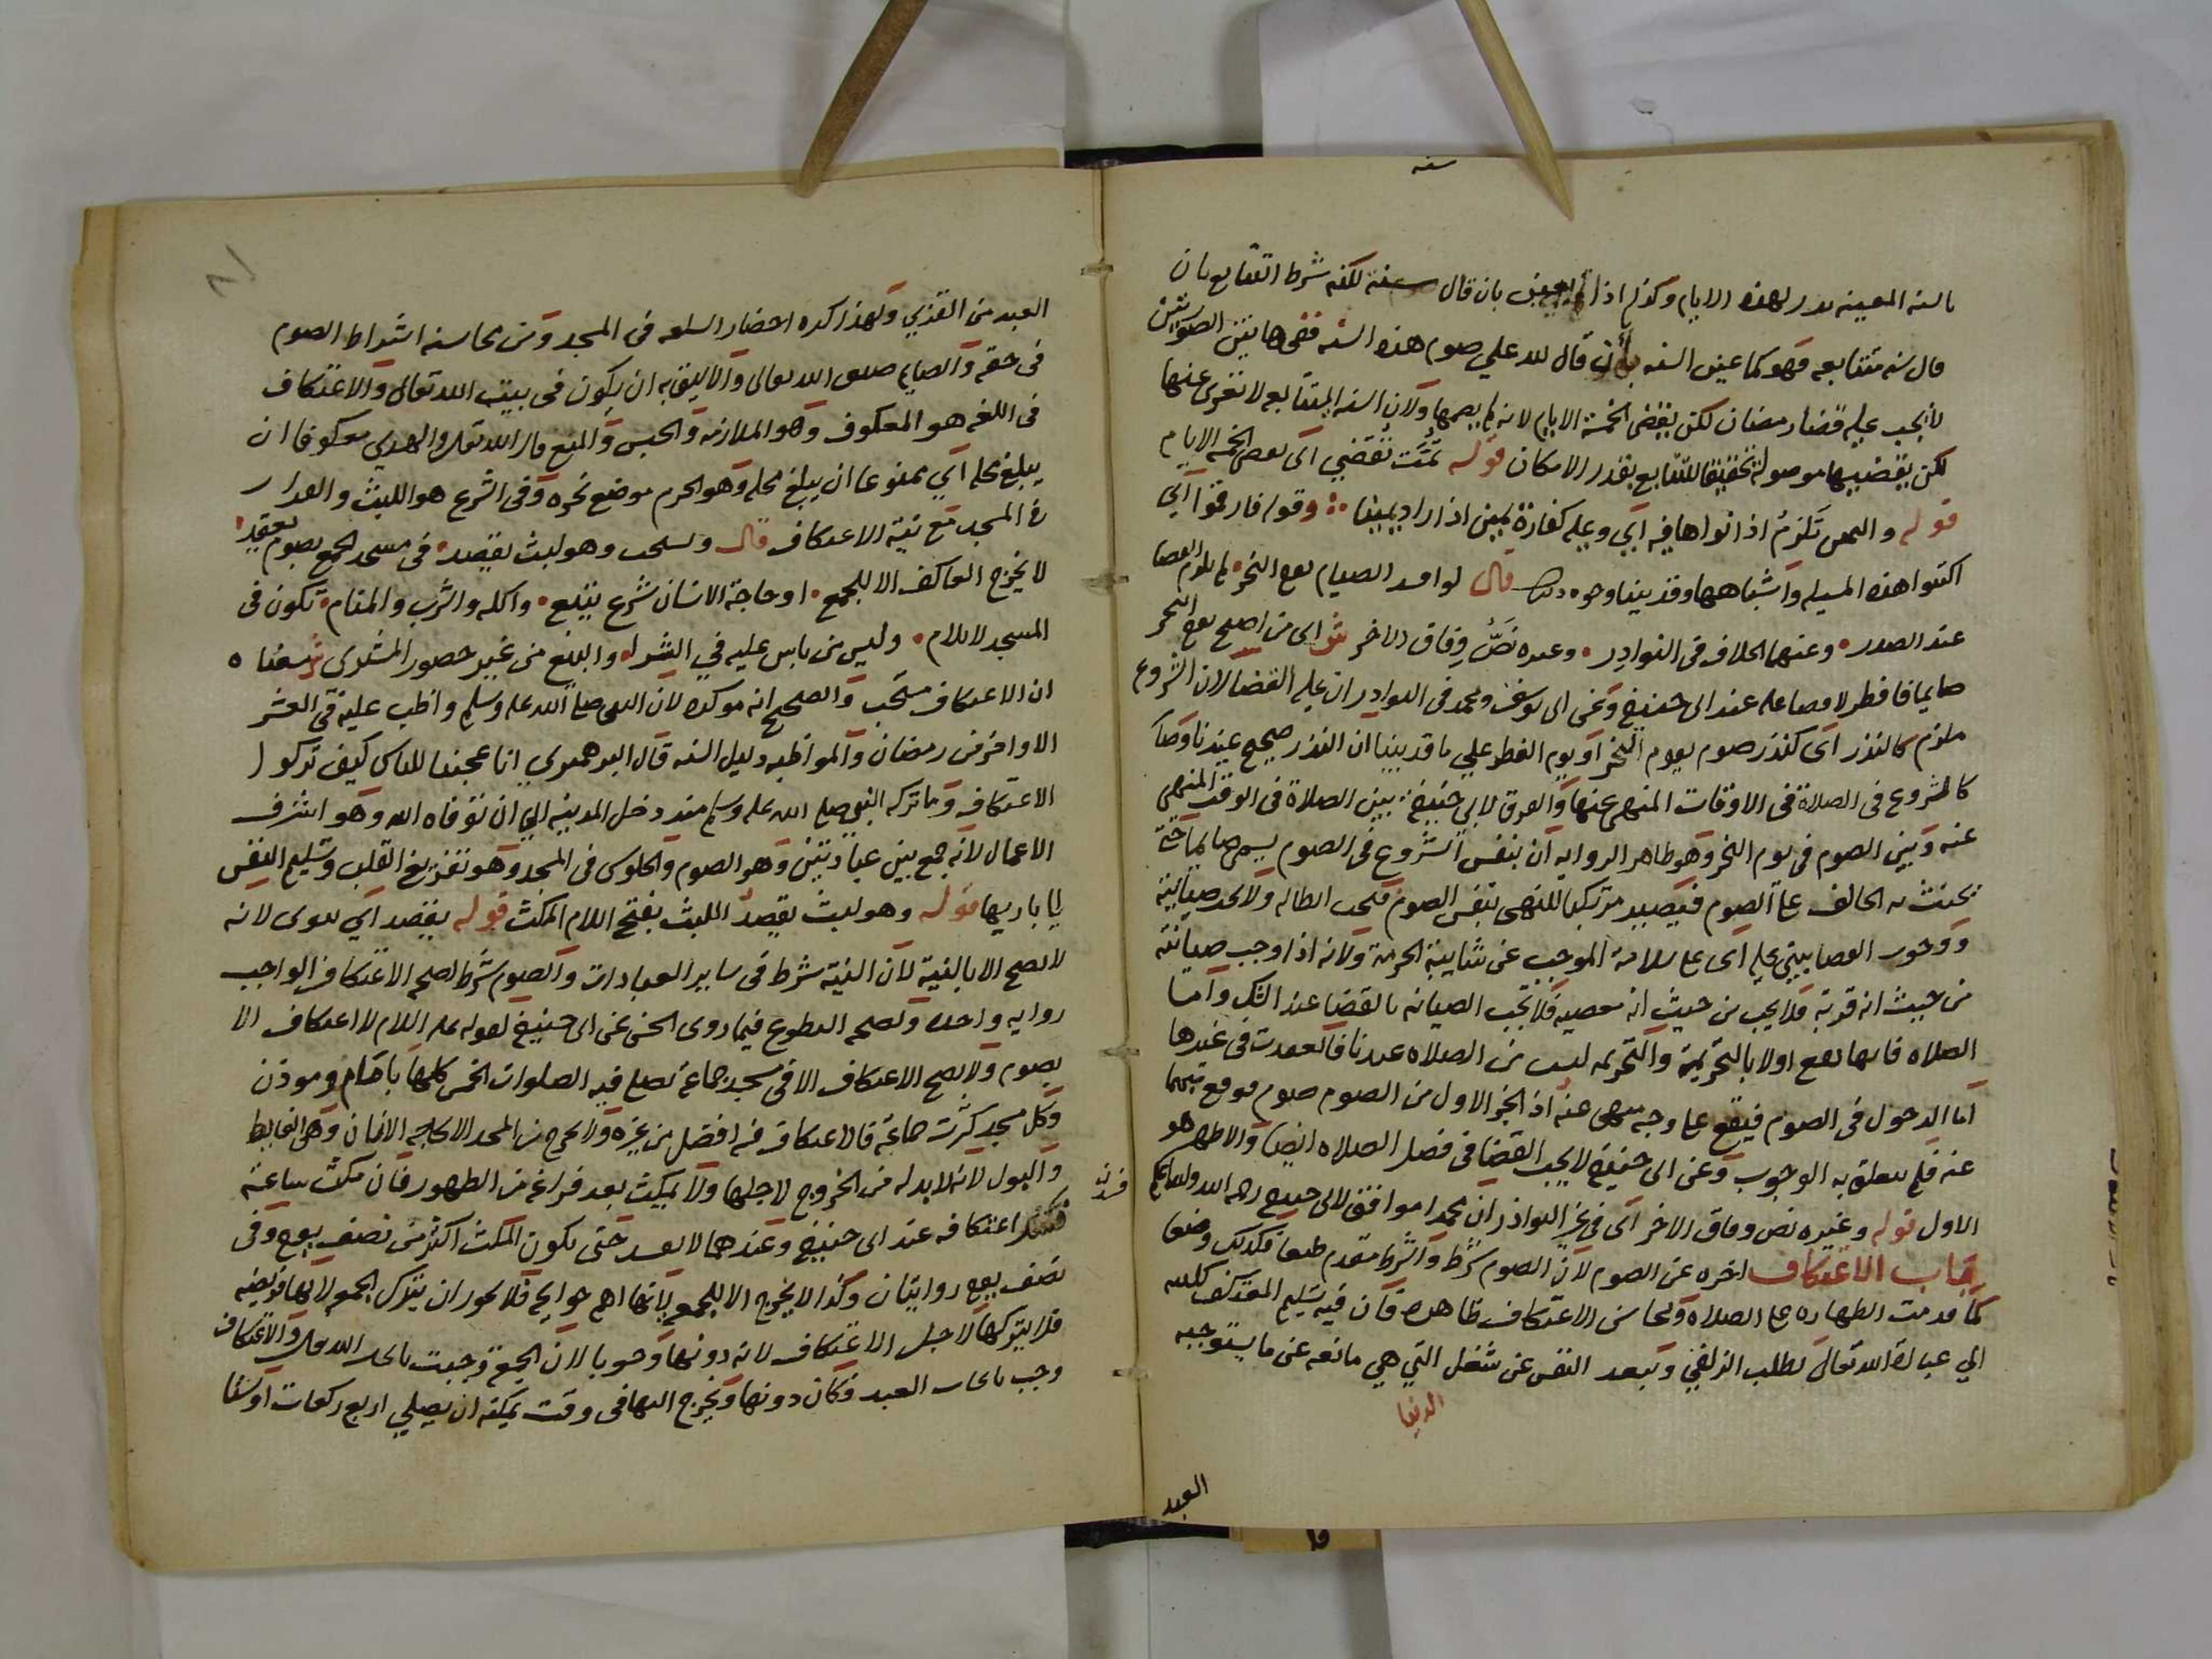 سنه
بالسنه المعينه نذر لهذه الايام وكذلك اذا لم يعين بان قال سنة لكنه شرط التتابع بان
قال سنه متتابعه فهو كما عين السنه بأن قال لله علي صوم هذه السنه ففي هاتين الصورتين
لا يجب عليه قضاء رمضان لكن يقضى الخمسة الايام لانه لم يصمها ولان السنه المتتابعه لا تعرى عنها
لكن يقضيها موصولة تحقيقا للتتابع بقدر الامكان قوله تمَّت تقضي اى بعض الخمسة الايام
قوله واليمين تَلزمُ اذا نواها فيه اي وعليه كفارة يمين اذا اراد يمينا وقوله فارقموا اي
اكتبوا هذه المسيله واشباهها وقد بينا وجوه ذلك قال لو افسد الصيام يوم النحر لم يلزم القضا
عند الصدر وعنهما الخلاف في النوادر وغيره نَصَّ وِفاق الآخر ش اى من اصبح يوم النحر
صايما فافطر لا قضا عليه عند ابى حنيفة وعن ابى يوسف ومحمد في النوادر ان عليه القضا لان الشروع
ملزم كالنذر اى كنذر صوم يوم النحر او يوم الفطر علي ما قد بينا ان النذر صحيح عندنا وصار
كالشروع في الصلاة في الاوقات المنهي عنها والفرق لابي حنيفة بين الصلاة في الوقت المنهي
عنه وبين الصوم في يوم النحر وهو ظاهر الرواية ان بنفس الشروع في الصوم يسمى صايما حتى
يحنث به الحالف على الصوم فيصير مرتكبا للنهي بنفس الصوم فيجب ابطاله ولا تجب صيانته
ووجوب القضا يبتني عليه اى على سلامة الموجب عن شايبة الحرمة ولانه اذا وجب صيانته
من حيث انه قربة فلا يجب من حيث انه معصيه فلا تجب الصيانه بالقضا عند الشك واما
الصلاه فانها تقع اولا بالتحريمة والتحريمه ليست من الصلاه عندنا فانعقدت في غيرها
اما الدخول في الصوم فيقع على وجه منهى عنه اذ الجزء الاول من الصوم صوم فوقع منهيا
عنه فلم يتعلق به الوجوب وعن ابى حنيفة لا يجب القضا في فصل الصلاه ايضا والاظهر هو
الاول قوله وغيره نص وفاق الآخر اى في غير النوادر ان محمدا موافق لابى حنيفه رحمه الله والله اعلم
كتاب الاعتكاف اخره عن الصوم لان الصوم شرط والشرط مقدم طبعا فكذلك وضعا
كما قدمت الطهاره على الصلاة ومحاسن الاعتكاف ظاهره فان فيه تسليم المعتكف كليته
الي عبادة الله تعالى بطلب الزلفى وتبعد النفس عن شغل التي هي مانعه عن ما يستوجبه
الدنيا
العبد
٨١
العبد من القربى ولهذا كره احضار السلعه في المسجد ومن محاسنه اشتراط الصوم
في حقه والصايم ضيف الله تعالى والاليق به ان يكون في بيت الله تعالى والاعتكاف
في اللغه هو المعكوف وهو الملازمه والحبس والمنع قال الله تعالى والهدي معكوفا ان
يبلغ محله اي ممنوعا ان يبلغ محله وهو الحرم موضع نحره وفي الشرع هو اللبث والقرار
في المسجد مع نية الاعتكاف قال ويستحب وهو لبث يقصد في مسجد الجمع بصوم يعقد
لا يخرج العاكف الا للجمع او حاجة الانسان شرع يتبع واكله والشرب والمنام تكون في
المسجد لا يلام وليس من باس عليه في الشرا والبيع من غير حضور المشترى
ان الاعتكاف مستحب والصحيح انه موكده لان النبي صلى الله عليه وسلم واظب عليه في العشر
الاواخر من رمضان والمواظبه دليل السنه قال الزهري انا عجبنا للناس كيف تركوا
الاعتكاف وما تركه النبي صلى الله عليه وسلم منذ دخل المدينه الي ان توفاه الله وهو اشرف
الاعمال لانه جمع بين عبادتين وهو الصوم والجلوس في المسجد وهو تفريغ القلب وتسليم النفس
الي باريها قوله وهو لبث يقصد اللبث بفتح اللام المكث قوله يقصد اي ينوى لانه
لا يصح الا بالنية لان النية شرط في ساير العبادات والصوم شرط لصحة الاعتكاف الواجب
رواية واحده ولصحة التطوع فيما روى الحسن عن ابى حنيفة لقوله عليه السلام لا اعتكاف الا
بصوم ولا يصح الاعتكاف الا في مسجد جماعة تصلى فيه الصلوات الخمس كلها بامام وموذن
وكل مسجد كثرت جماعته فالاعتكاف فيه افضل من غيره ولا يخرج من المسجد الا لحاجة الانسان وهي الغايط
والبول لانه لابد له من الخروج لاجلها ولا يمكث بعد فراغه من الطهور فان مكث ساعة
فسد
اعتكافه عند ابى حنيفة وعندهما لا يفسد حتى يكون المكث اكثر من نصف يوم وفى
نصف يوم روايتان وكذا لا يخرج الا للجمعة لانها اهم حوايجه فلا يجوز ان يترك الجمعه لانها فريضه
فلا يتركها لاجل الاعتكاف لانه دونها وجوبا لان الجمعة وجبت بايجاب الله تعالى والاعتكاف
وجب بايجاب العبد فكان دونها ويخرج اليها في وقت يمكنه ان يصلي اربع ركعات اوستا